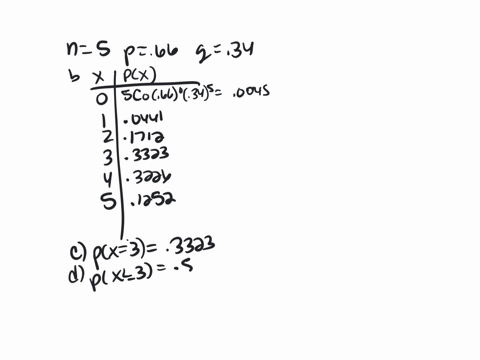 n=5 p=.66 q=.34
b x p(x)
0 5C0(.66)⁰(.34)⁵= .0045
1 .0441
2 .1712
3 .3323
4 .3226
5 .1252
c) p(x=3)= .3323
d) p(x≤3)= .5